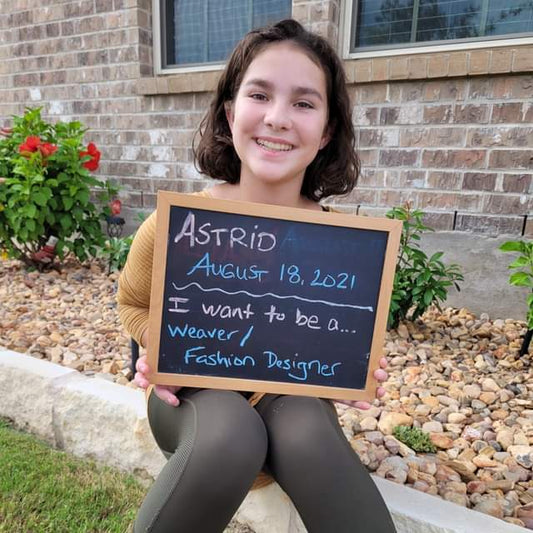 ASTRID
AUGUST 18, 2021
I want to be a...
Weaver/
Fashion Designer